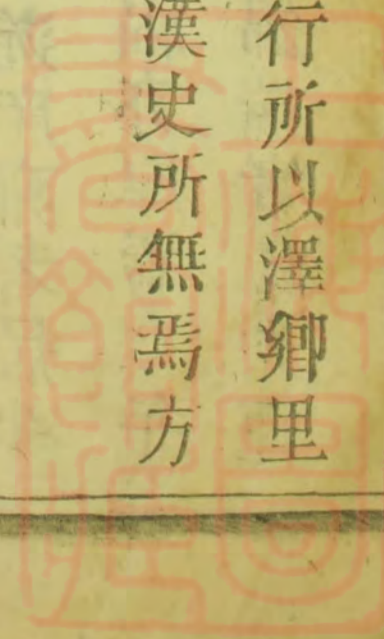 行所以澤鄉里
漢史所無焉方